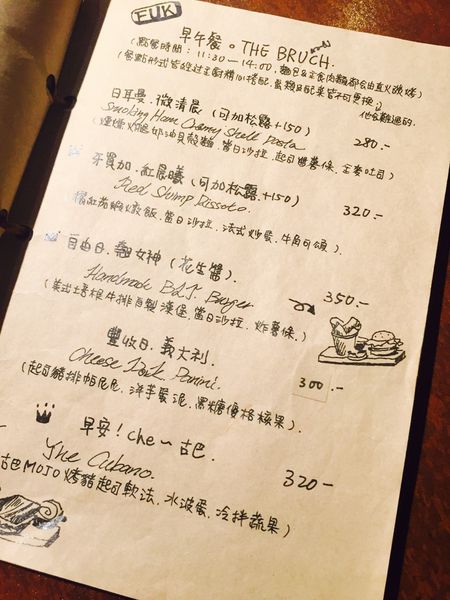 FUK
早午餐。THE BRUCH.
(點餐時間: 11:30 – 14:00, 麵包&主食肉類都會由直火碳烤)
(餐點形式皆經过主廚精心搭配,蛋類及配菜皆不可更換,他會難過的.
日耳曼.微清晨 (可加松露+150)
Smoking Ham Creamy Shell Pasta 280.–
(煙燻火腿奶油貝殼麵.當日沙拉.起司雙薯條.全麥吐司)
牙買加.紅晨曦 (可加松露+150)
Red Shrimp Rissoto. 320.–
橘紅蝦燉飯.當日沙拉.法式炒蛋.牛角可頌).
自由日.翻女神 (花生醬).
Handmade B.L.T. Burger 350.–
(美式培根牛排自製漢堡.當日沙拉.炸薯條.)
豐收日.義大利.
Cheese Pork Panini. 300.–
(起司豬排帕尼尼.洋芋蛋泥.黑糖優格核果)
早安!Che～古巴.
The Cubano. 320–
古巴MOJO烤豬起司軟法.水波蛋.冷拌蔬果)